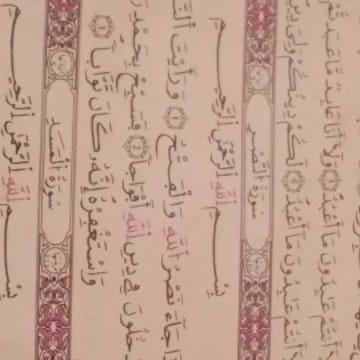 أَنتُمْ عَٰبِدُونَ مَآ أَعْبُدُ ۝٣ وَلَآ أَنَا۠ عَابِدٌ مَّا عَبَدتُّمْ
أَنتُمْ عَٰبِدُونَ مَآ أَعْبُدُ ۝٥ لَكُمْ دِينُكُمْ وَلِىَ دِينِ
سُورَةُ النَّصْرِ
بِسْمِ ٱللَّهِ ٱلرَّحْمَٰنِ ٱلرَّحِيمِ
جَآءَ نَصْرُ ٱللَّهِ وَٱلْفَتْحُ ۝١ وَرَأَيْتَ
فِى دِينِ ٱللَّهِ أَفْوَاجًا ۝٢ فَسَبِّحْ بِحَمْدِ
وَٱسْتَغْفِرْهُ إِنَّهُۥ كَانَ تَوَّابًۢا ۝٣
سُورَةُ المَسَدِ
بِسْمِ ٱللَّهِ ٱلرَّحْمَٰنِ ٱلرَّحِيمِ